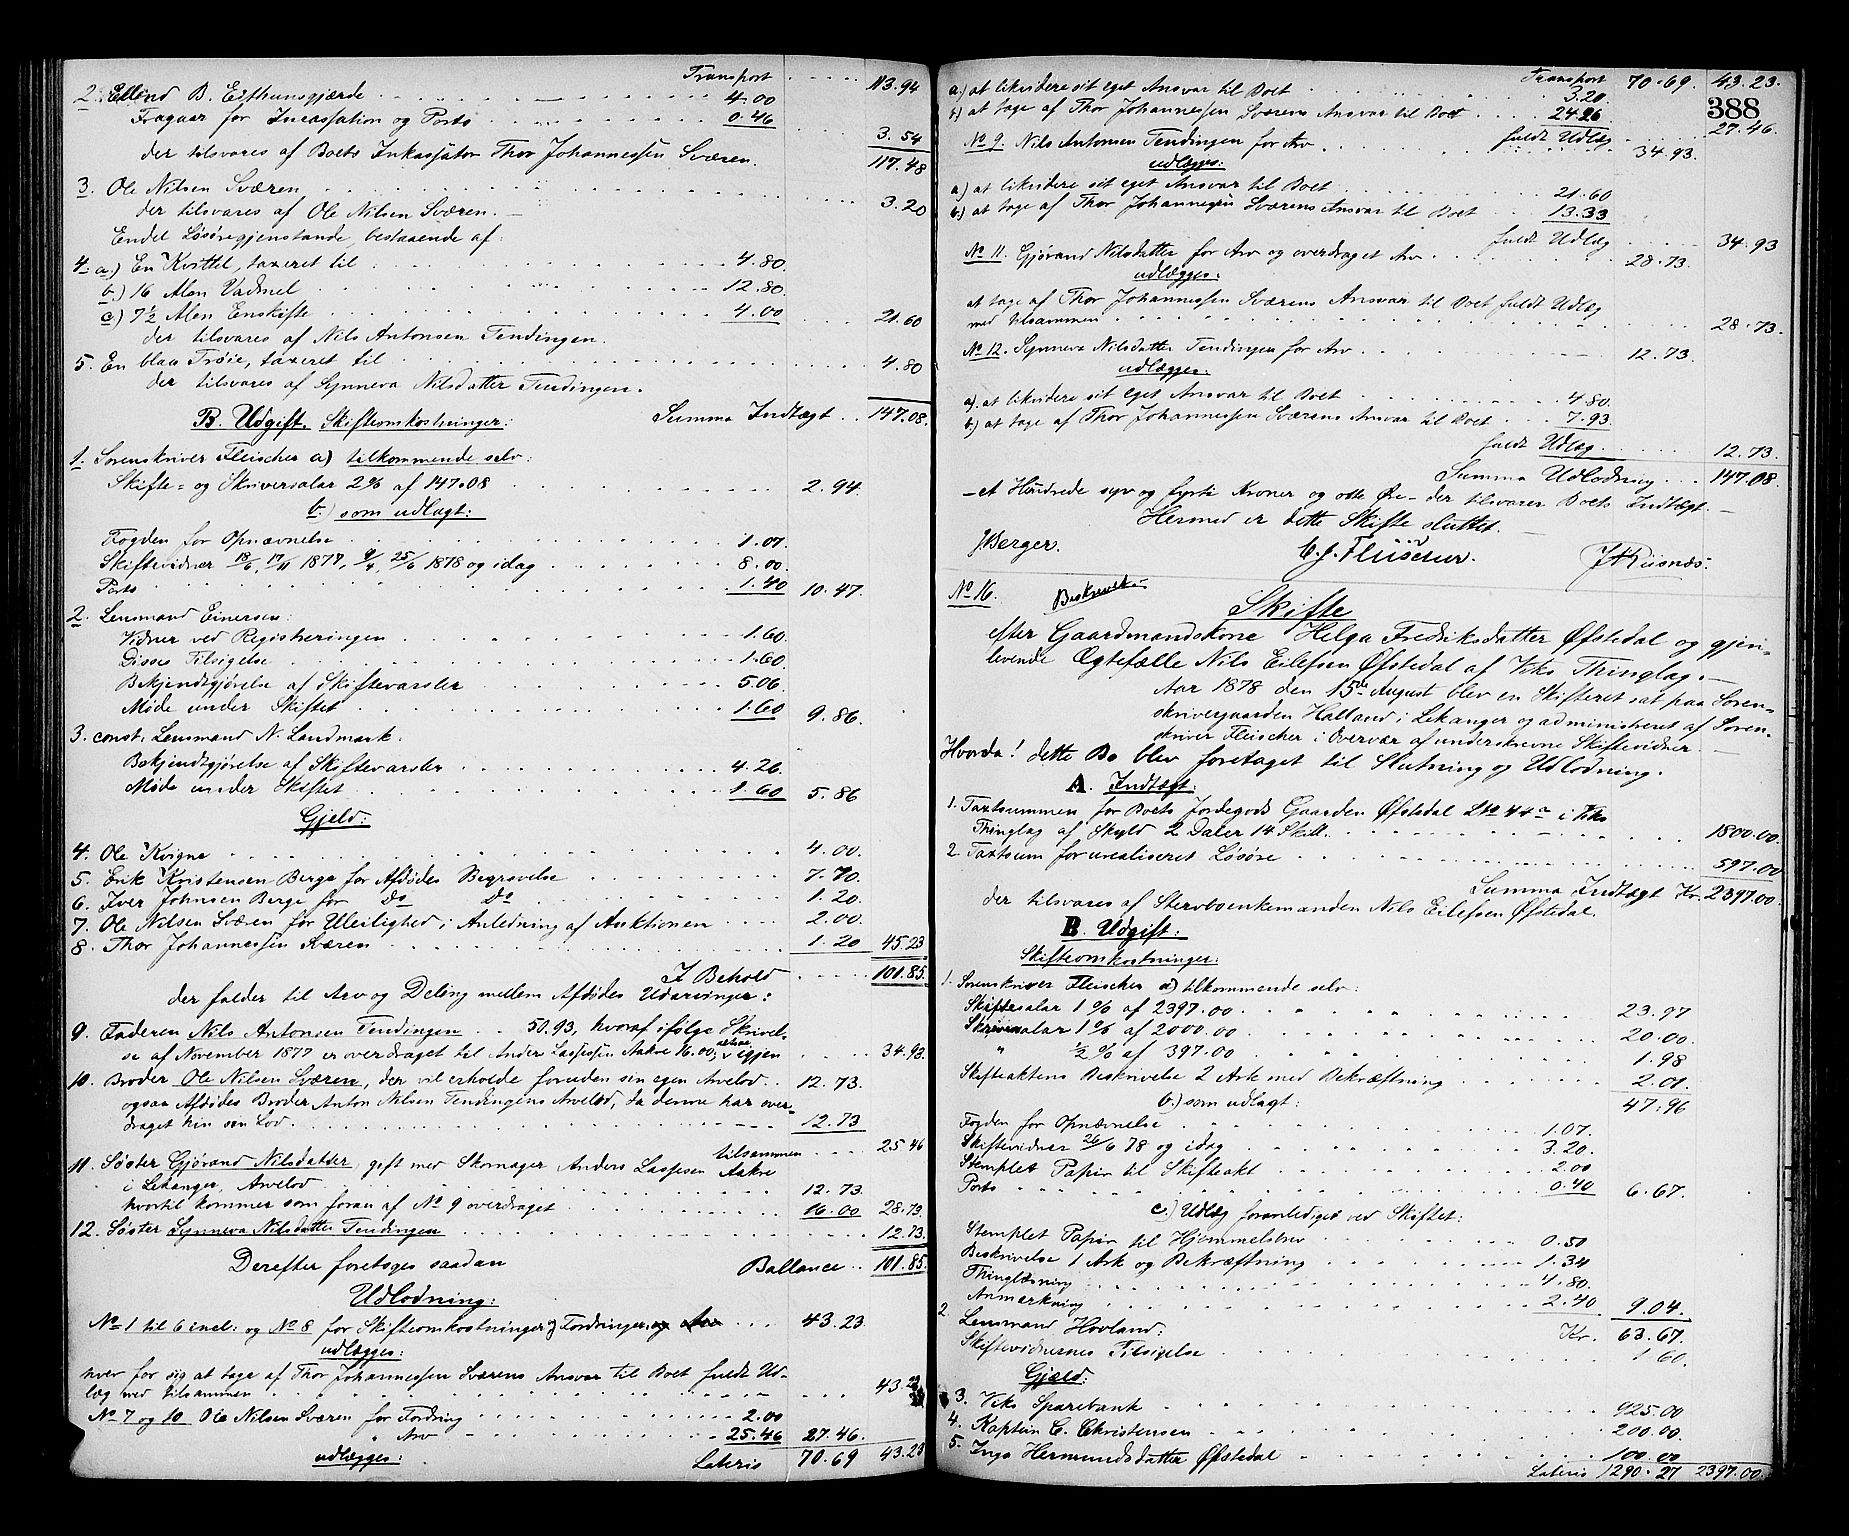 Transport . . . . 113.94
2. Erlend B. Eithunsgjærde . . . 4.00
Fragaar for Incassation og Porto . . . 0.46
3.54
der tilsvares af Boets Inkassator Thor Johannessen Sværen.
117.48
3. Ole Nilsen Sværen . . . 3.20
der tilsvares af Ole Nilsen Sværen. —
Endel Løsøregjenstande, bestaaende af:
4. a.) En Kvittel, taxeret til . . . 4.80.
b.) 16 Alen Vadmel . . . 12.80.
c) 7½ Alen Enskjfte . . . 4.00 21.60
der tilsvares af Nils Antonsen Tendingen.
5. En blaa Trøie, taxeret til . . . 4.80
der tilsvares af Synneva Nilsdatter Tendingen.
Summa Indtægt . . 147.08.
B. Udgift. Skifteomkostninger:
1. Sorenskriver Fleischer a) tilkommende selv:
Skifte- og Skriversalar 2% af 147.08 . . . 2.94.
b.) som udlagt:
Fogden for Opnævnelse . . . 1.07.
Skiftevidner 18/6, 17/11 1877, 9/4, 25/6 1878 og idag . . . 8.00.
Porto . . . 1.40 10.47.
2. Lensmand Einersen:
Vidner ved Registreringen . . . 1.60.
Disses Tilsigelse . . . 1.60.
Bekjendtgjørelse af Skiftevarsler . . . 5.06.
Møde under Skiftet . . . 1.60 9.86.
3. const. Lensmand N. Landmark.
Bekjendtgjørelse af Skiftevarsler . . . 4.26.
Møde under Skiftet . . . 1.60 5.86
Gjeld:
4. Ole Kvigne . . . 4.00.
5. Erik Kristensen Berge for Afdødes Begravelse . . . 7.70.
6. Iver Johnsen Berge for Do Do . . . 1.20.
7. Ole Nilsen Sværen for Uleilighed i Anledning af Auktionen . . . 2.00.
8. Thor Johannessen Sværen . . . 1.20 45.23
I Behold . . . 101.85.
der falder til Arv og Deling mellem Afdødes Udarvinger:
9. Faderen Nils Antonsen Tendingen . . 50.93, hvoraf ifølge Skrivel-
se af November 1877 er overdraget til Anders Lassesen Aakre 16.00, igjen . . . 34.93.
10. Broder Ole Nilsen Sværen, der vil erholde foruden sin egen Arvelod . . 12.73.
ogsaa Afdødes Broder Anton Nilsen Tendingens Arvelod, da denne har over-
draget hin sin Lod . . . 12.73
tilsammen . . . 25.46
11. Søster Gjørand Nilsdatter, gift med Skomager Anders Lassesen Aakre
i Lekanger, Arvelod . . . 12.73.
hvortil kommer som foran af No 9 overdraget . . . 16.00 28.73.
12. Søster Synneva Nilsdatter Tendingen . . . 12.73.
Ballance . . 101.85.
Derefter foretages saadan
Udlodning:
No 1 til 6 incl: og No 8 for Skifteomkostninger & Fordringer . . . 43.23.
udlægges:
hver for sig at tage af Thor Johannessen Sværens Ansvar til Boet fuldt Ud-
læg med tilsammen . . . 43.23
No 7 og 10 Ole Nilsen Sværen for Fordring . . . 2.00
" Arv . . . 25.46 27.46.
udlægges: Lateris 70.69 43.23
Transport 70.69. 43.23.
388
a.) at likvidere sit eget Ansvar til Boet . . . 3.20.
b.) at tage af Thor Johannessen Sværens Ansvar til Boet . . . 24.26
fuldt Udlæg . . . 27.46.
No 9. Nils Antonsen Tendingen for Arv . . . 34.93.
udlægges:
a.) at likvidere sit eget Ansvar til Boet . . . 21.60
b.) at tage af Thor Johannessens Sværens Ansvar til Boet . . 13.33
fuldt Udlæg . . . 34.93
No 11. Gjørand Nilsdatter for Arv og overdraget Arv . . . 28.73.
udlægges:
at tage af Thor Johannessen Sværens Ansvar til Boet fuldt Udlæg
med tilsammen . . . 28.73.
No 12. Synneva Nilsdatter Tendingen for Arv . . . 12.73.
udlægges:
a). at likvidere sit eget Ansvar til Boet . . . 4.80.
b.) at tage af Thor Johannessen Sværens Ansvar til Boet . . 7.93.
fuldt Udlæg . . . 12.73.
Summa Udlodning . . . 147.08.
— et Hundrede syv og fyrti Kroner og otte Øre — der tilsvarer Boets Indtægt. —
Hermed er dette Skifte sluttet. —
J Berger. C. J. Fleischer. J. Riisnæs.
No 16. Beskrevet
Skifte
efter Gaardmandskone Helga Fredriksdatter Øfstedal og gjen-
levende Ægtefælle Nils Eilefsen Øfstedal af Viks Thinglag. —
Aar 1878 den 15de August blev en Skifteret sat paa Soren-
skrivergaarden Halland i Lekanger og administreret af Soren-
skriver Fleischer i Overvær af underskrevne Skiftevidner. —
Hvorda! dette Bo blev foretaget til Slutning og Udlodning.
A. Indtægt:
1. Taxtsummen for Boets Jordegods Gaarden Øfstedal L No 44a i Viks
Thinglag af Skyld 2 Daler 14 Skill. . . . 1800.00.
2. Taxtsum for urealiseret Løsøre . . . 597.00
Summa Indtægt Kr. 2397.00.
der tilsvares af Stervboenkemanden Nils Eilefsen Øfstedal.
B. Udgift:
Skifteomkostninger:
1. Sorenskriver Fleischer a) tilkommende selv:
Skiftesalar 1 % af 2397.00 . . . 23.97
Skriversalar 1 % af 2000.00 . . . 20.00.
" ½ % af 397.00 . . . 1.98
Skifteaktens Beskrivelse 2 Ark med Bekræftning . . . 2.01.
47.96
b.) som udlagt:
Fogden for Opnævnelse . . . 1.07.
Skiftevidner 26/6 78 og idag . . . 3.20.
Stemplet Papir til Skifteakt . . . 2.00
Porto . . . 0.40 6.67.
c.) Udlæg foranlediget ved Skiftet:
Stemplet Papir til Hjemmelsbrev . . . 0.50
Beskrivelse 1 Ark og Bekræftning . . . 1.34
Thinglæsning . . . 4.80.
Anmerkning . . . 2.40 9.04.
Kr. 63.67.
2. Lensmand Hovland:
Skiftevidnernes Tilsigelse . . . 1.60.
Gjæld:
3. Viks Sparebank . . . 925.00
4. Kaptein C. Christensen . . . 200.00.
5. Inga Hermundsdatter Øfstedal . . . 100.00
Lateris 1290.27 2397.00.